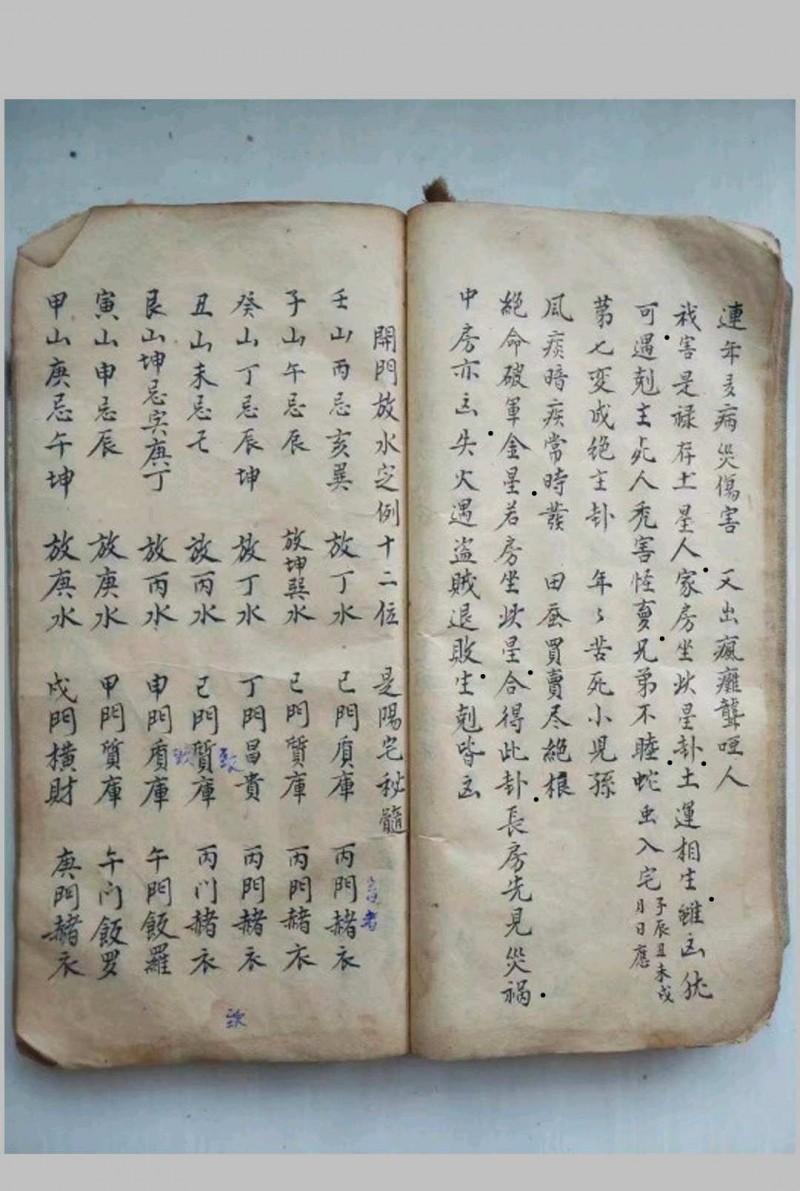 連年多病災傷害　又出瘋癱聾啞人
戕害是禄存土星人家房坐此星卦土運相生雖凶犹
可遇剋主死人秃害怪夢兄弟不睦蛇虫入宅子辰丑未戌月日應
第七变成绝主卦　年々苦死小児孫
風痰暗疾常時發　田蚕買賣尽絕根
絕命破軍金星若房坐此星合得此卦長房先見災禍
中房亦凶失火遇盜賊退敗生剋皆凶
開門放水定例十二位　是陽宅秘髓
壬山丙忌亥巽　放丁水　巳門質庫　丙門赭衣
子山午忌辰　放坤巽水　巳門質庫　丙門赭衣
癸山丁忌辰坤　放丁水　丁門昌貴　丙門赭衣
丑山未忌　放丙水　巳門質庫　丙门赭衣
艮山坤忌寅庚丁　放丙水　申門質庫　午門飯羅
寅山申忌辰　放庚水　甲門質庫　午门飯罗
甲山庚忌午坤　放庚水　戌門横財　庚門赭衣